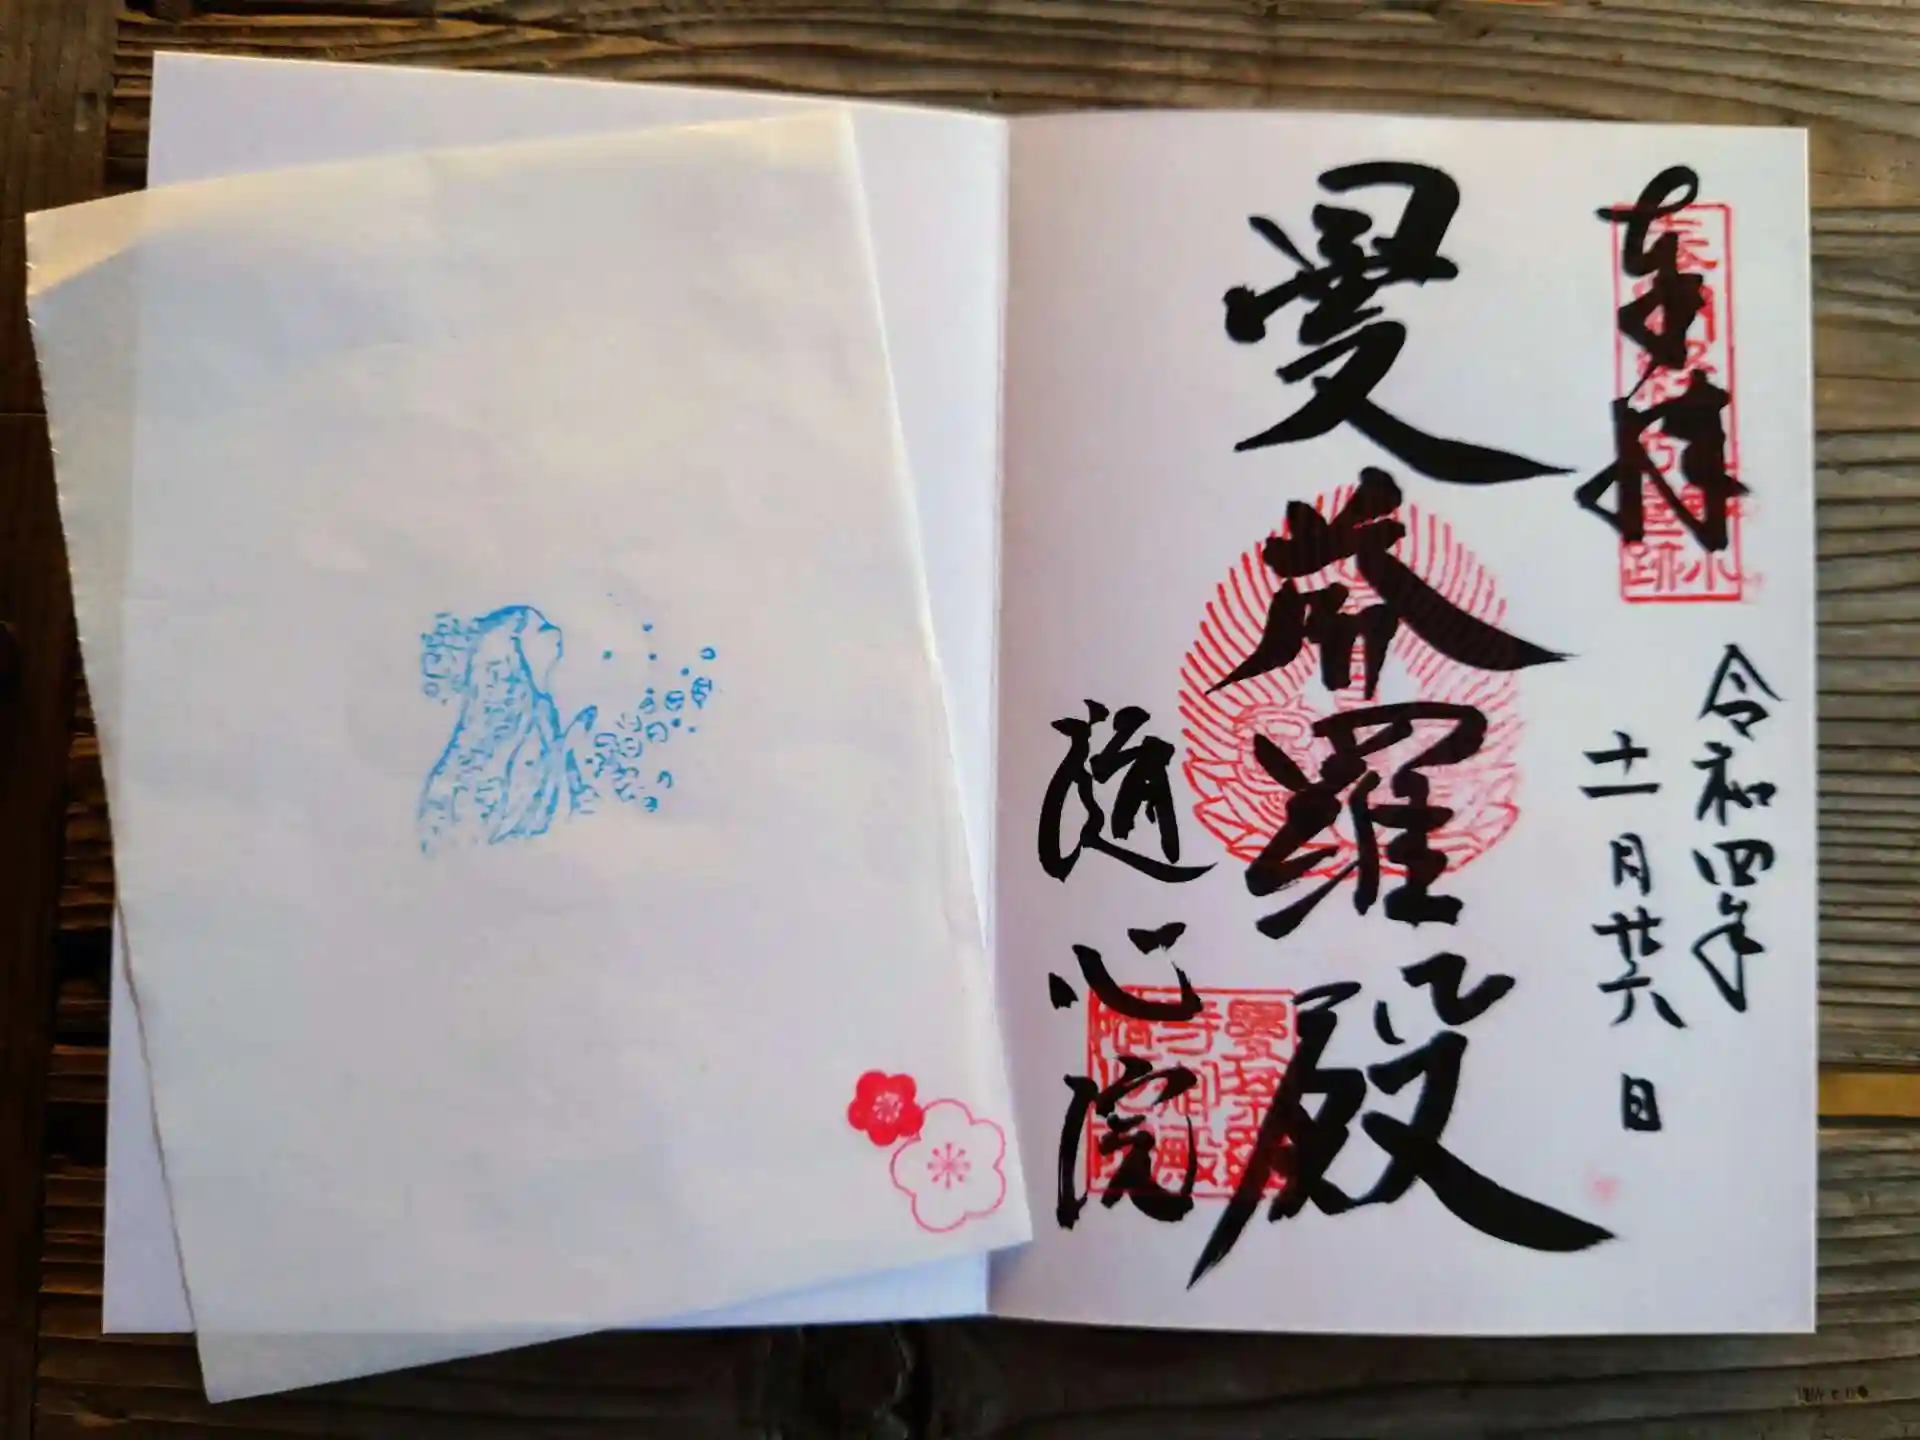 奉拝
令和四年
十一月廿六日
曼荼羅殿
随心院
曼荼羅
寺御殿
隨心院